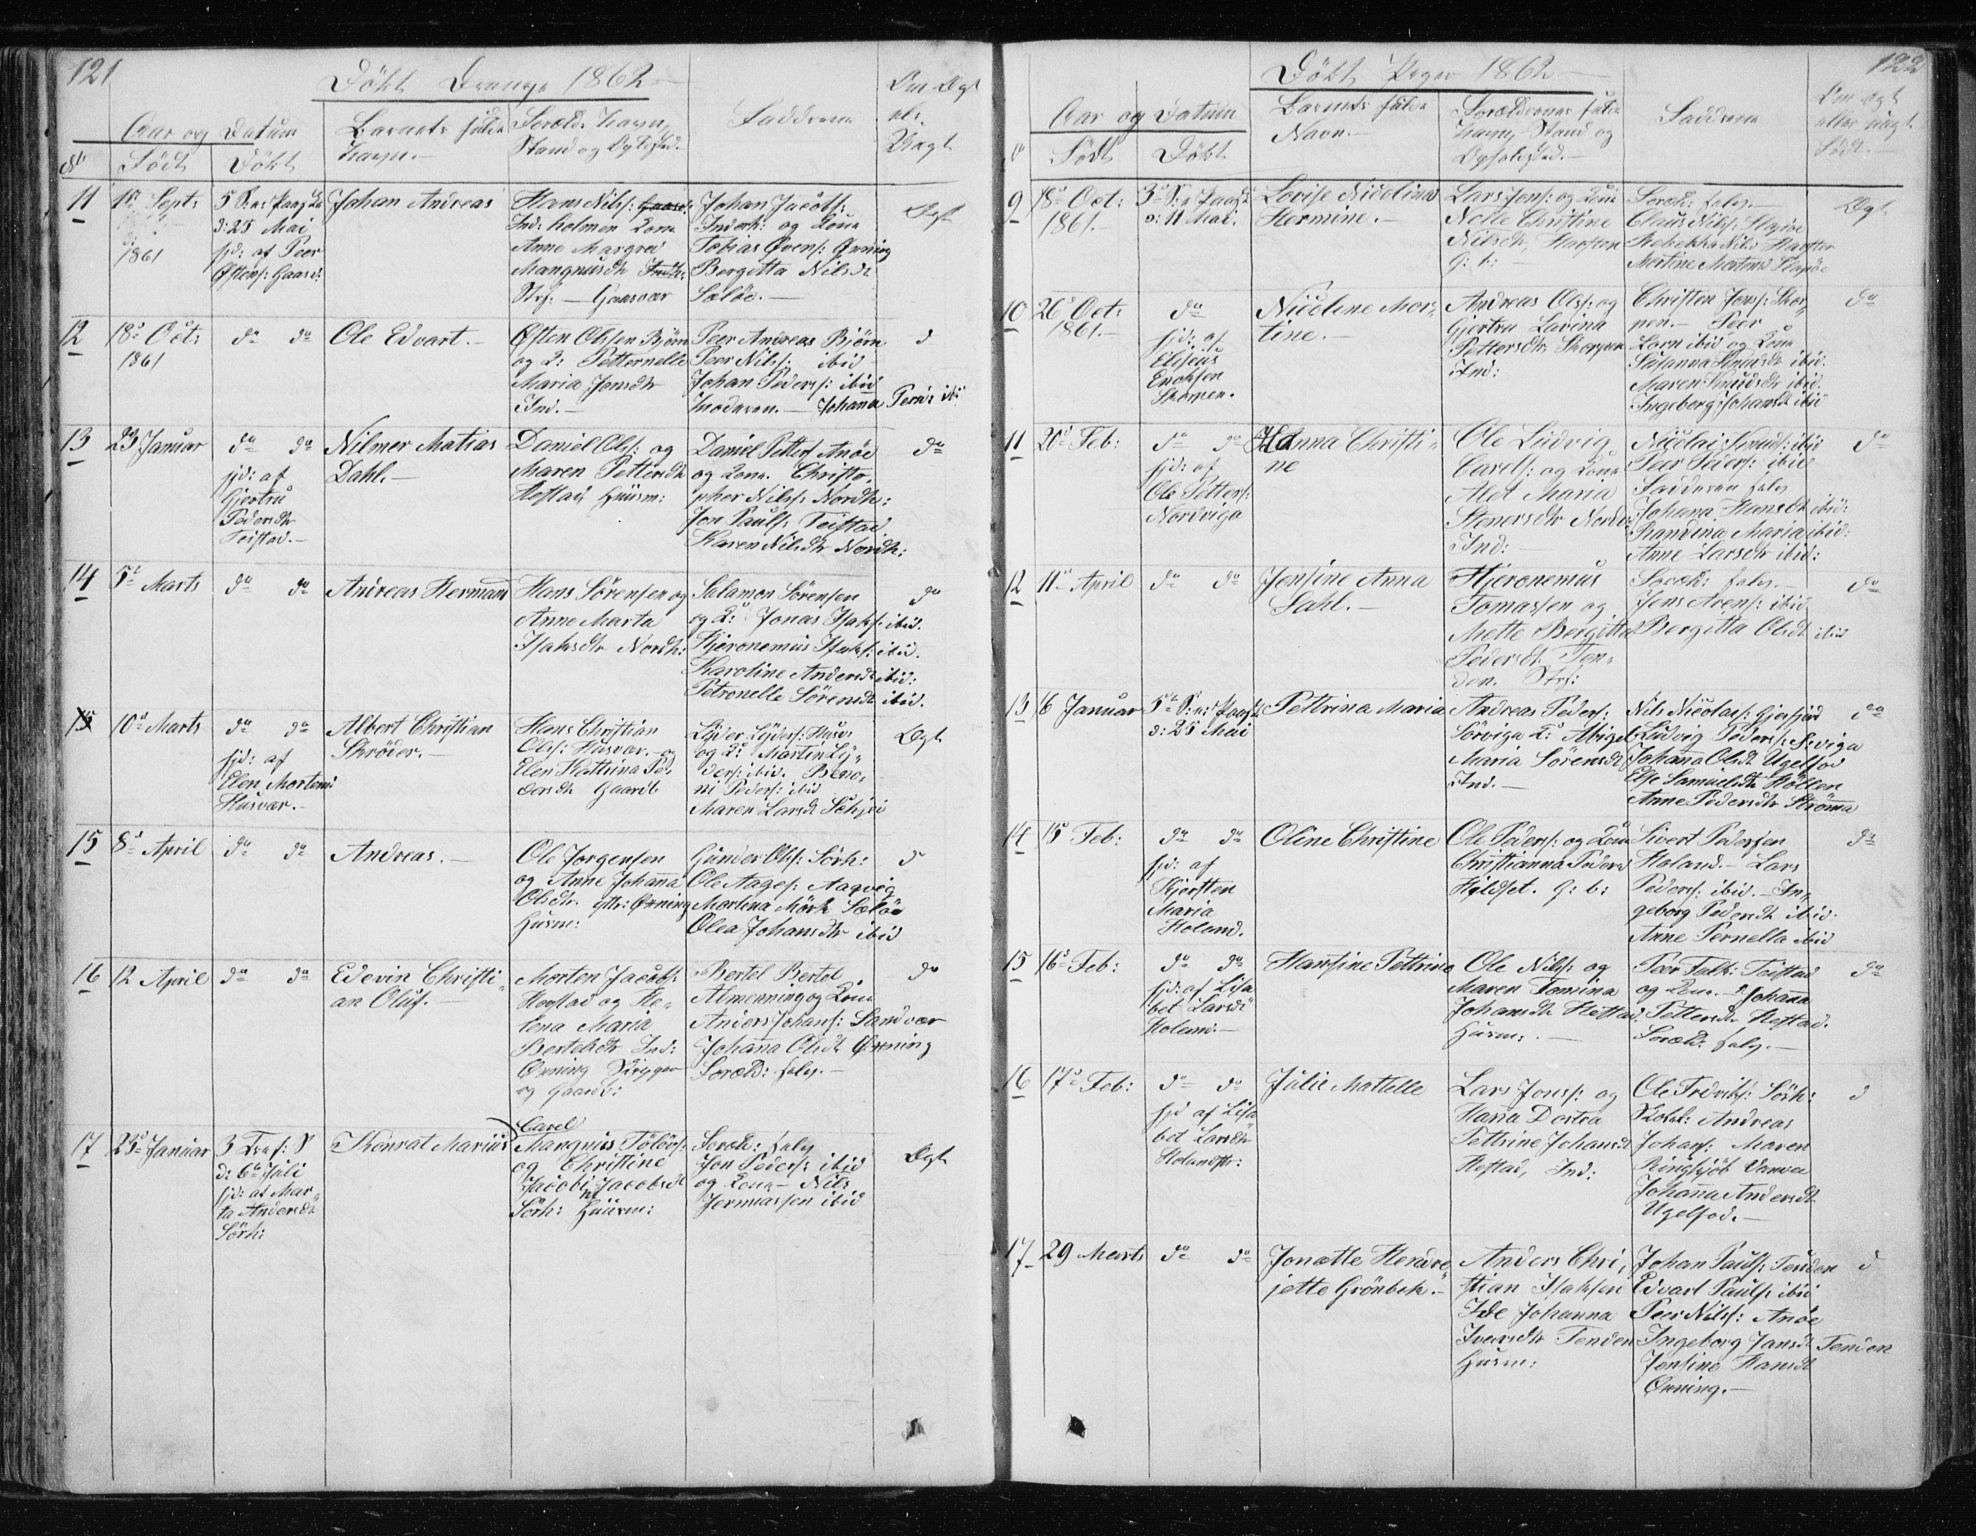 121
Döbt Drenge 1862
Aar og Datum
Födt Döbt
Barnets fulde
Navn.
Foræld: Navn,
Stand og Opholsted.
Faddrene
Om Ægt
elr.
Uægt
11
1ste Septr
1861
5 S: e: Paaske
d: 25 Mai
hjd: af Peer
Östens: Gaasv:
Johan Andreas
Hans Nils:
Ind: holmen Kone
Anne Margret
Mangnusdtr
Str: — Gaasvær
Johan Jacobs:
Inderh: og Kone
Tobias Övens: Örning
Bergitta Nilsdr
Sælöe.—
Ægt
12
18de Oct:
1861
do do
Ole Edvart.—
Östen Olsen Björn
og K: Petternelle
Maria Jonsdtr
Ind.—
Peer Andreas Björn
Peer Nils: ibid
Johan Peders: ibid
Moderen.— Johanna Peed: ibi
do
13
23 Januar
do do
hjd: af
Gjertru
Pedersdtr
Teistad.—
Nilmer Matias
Dahl.—
Daniel Ols: og
Maren Pettersdtr
Hestad, Huusm:
Daniel Petters Anöe
og Kone. Christo-
pher Nils: Nordh:
Jon Pauls: Teistad
Karen Nilsdtr Nordh:
do
14
5te Marts
do do
Andreas Hermann
Hans Sörensen og
Anne Marta
Isaksdtr Nordh:
Salamon Sörensen
og K: Jonas Isaks: ibid.
Hjeronemus Isaks: ibid.
Karoline Andersdt ibid:
Petronelle Sörensdt ibid.
do
10de Marts
do do
hjd: af
Elen Mortens
Husvær.—
Albert Christian
Skröder.—
Hans Christian
Ols: Husvær. og
Elen Kattrina Pe-
dersdtr Gaardb
Lyder Lyders: Husv:
og K: Martin Ly-
ders: ibid. Beno-
ni Peders: ibid
Maren Larsdt
Ægt
15
8de April
do do
Andreas.—
Ole Jorgensen
og Anne Johanna
Olsdtr. Örning
Husm:
Gunder Ols: Sörh:
Ole Aages: Aagvig
Martina Mörk Sælöe
Olea Johansdtr ibid
do
16
12 April
do do
Edevin Christi-
an Oluf.—
Morten Jacobs:
Hestad og He-
lena Maria
Bertelsdtr Ind:
Örning
og Gaardb:
Bertel Bertel
Almenning og Kone
Anders Johans: Sandvær
Johanna Olsdt Örning
Foræld: selv.—
do
17
23de Januar
3 Tref: S
d: 6te Juli
hjd: af Mar-
ta Andersdt
Sörh:
Konrat Marius
Carel
Mangnus Tölövs:
og Christine
Jacobi Jacobsdt
Sörh: Huusm:
Foræld: selv
Jon Peders: ibid
og Kone — Nils
Jermiassen ibid
Ægt
122
Döbt Piger 1862
Aar og Datum
Födt Döbt
Barnets fulde
Navn.—
Forældrenes fulde
Navn, Stand og
Opholsted.—
Faddrene
Om ægt
eller uægt
Födt.—
9
18de Oct:
1861.—
3de S: e Paaske
d: 11 Mai.
Lovise Nicolina
Hermine.—
Lars Jens: og Kone
Nelle Christine
Nilsdtr,
G: b:
Foræld: selv.—
Cleus Nils:
Rebekka Nils:
Martine Mortens
Ægt
10
26de Oct:
1861.—
do
hjd: af
Elisius
Enoksen
Skomen.
Nicoline Mor-
tine.—
Andreas Ols: og
Gjertru Lavina
Pettersdtr Skorpen
Ind:
Christen Jens: Skor-
pen.— Peer
Zarn ibid og Kone
Susanna Knudsdt ibid:
Maren Knudsdtr ibid.
Ingeborg Johansdt ibid
do
11
20de Feb:
do do
hjd: af
Ole Petters:
Nordviga
Hanna Christi-
ne
Ole Ludvig
Carels: og Kone
Alet Maria
Stenersdtr Nordv
Ind:
Nicolai Knuds: ibid
Peer Peders: ibid
Fadderen selv
Johanna Hansdt ibid:
Randina Maria ibid:
Anne Larsdtr ibid:
do
12
11te April
do do
Jensine Anna
Dahl.—
Hjeronemus
Tomassen og
Mette Bergitta
Pedersdt Ten-
den. Str:
Foræld: selv.—
Jens Arens: ibid
Bergitta Olsdt ibid
do
13
6 Januar
5te S: e: Paaske
d: 25 Mai
Pettrina Maria
Andreas Peders:
Sörviga K: Abigel
Maria Sörensdt
Ind.—
Nils Nicolas: Gjerfjord
Ludvig Peders: S:viga
Johanna Olsdt Ugelfod
Else Samuelsdtr Höllen
Anne Pedersdtr Strömma
do
14
15 Feb:
do do
hjd: af
Kjersten
Maria
Holand.
Oline Christine
Ole Peders: og Kone
Christianna Peders
Hildset. G: b:
Sivert Pedersen
Holand.— Lars
Peders: ibid.— In-
geborg Pedersdt ibid.
Anne Pernella ibid
do
15
16de Feb:
do do
hjd: af Lisa
bet Larsdt
Holand:—
Hansine Pettrine
Ole Nils: og
Maren Tomina
Johansdtr Hestad,
Husm:.—
Peer Falk: Teistad
og Kone.— Johanna
Pettersdtr Hestad.
Foræld: selv.—
do
16
17de Feb:
do do
hjd af Lisa
bet Larsdtr
Holandstr:
Julie Mattelle
Lars Jons: og
Maria Dortea
Pettrine Johansdt
Hestad, Ind:
Ole Fredriks: Sörh:
Andreas
Johans: Maren
Johanna Andersdt
Ugelfod.—
do
17
29 Marts
do do
Jonette Hendre
jette Grönbek.—
Anders Chri-
stian Isaksen
Ide Johanna
Iversdtr Tenden
Husm:
Johan Pauls: Tenden
Edvart Pauls: ibid
Peer Nils: Anöe
Ingeborg Jansdt Tenden
Jensine Hansdt
Örning.—
do